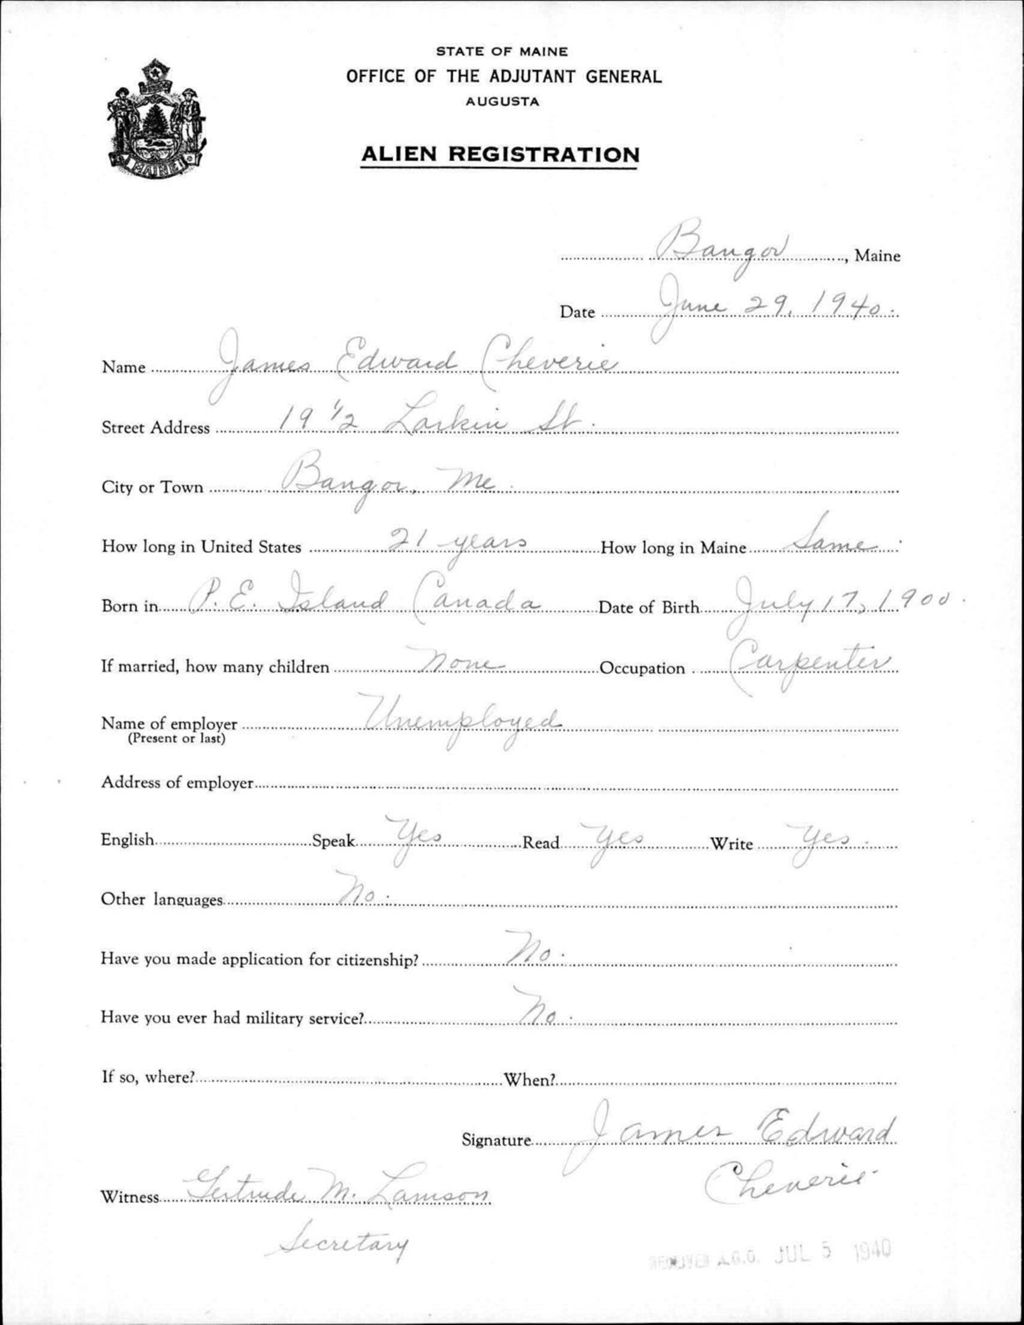 STATE OF MAINE
OFFICE OF THE ADJUTANT GENERAL
AUGUSTA
ALIEN REGISTRATION
MAINE
Bangor, Maine
Date June 29, 1940.
Name James Edward Cheverie
Street Address 19 1/2 Larkin St.
City or Town Bangor, Me.
How long in United States 21 years How long in Maine Same.
Born in P. E. Island Canada Date of Birth July 17, 1900.
If married, how many children None Occupation Carpenter
Name of employer Unemployed
(Present or last)
Address of employer
English Speak Yes Read Yes Write Yes.
Other languages No.
Have you made application for citizenship? No.
Have you ever had military service? No.
If so, where? When?
Signature James Edward
Cheverie
Witness Gertrude M. Lamson
Secretary
A.G.O. JUL 5 1940